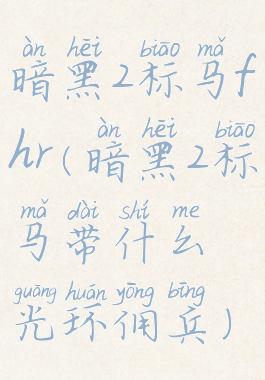 àn hēi biāo mǎ
暗黑2标马f
àn hēi biāo
hr(暗黑2标
mǎ dài shí me
马带什么
guāng huán yōng bīng
光环佣兵)